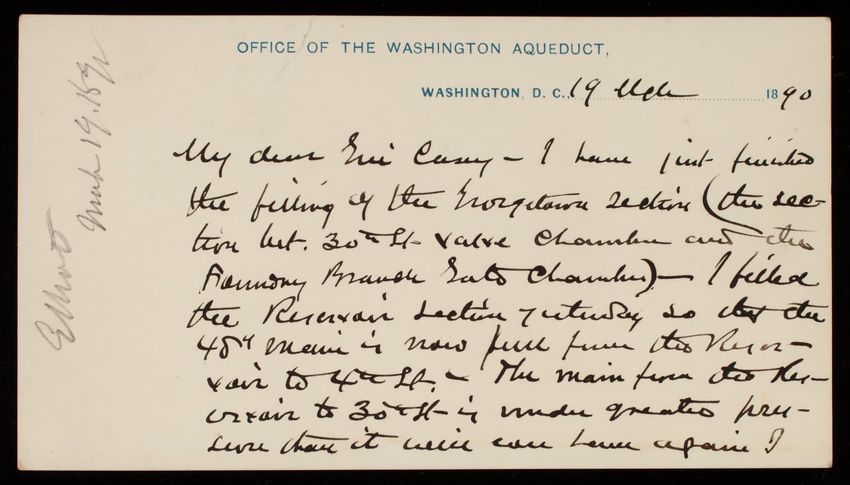 OFFICE OF THE WASHINGTON AQUEDUCT,
WASHINGTON, D. C., 19 Mch 1890
My dear Genl Casey – I have just finished
the filling of the Georgetown section (the sec-
tion bet. 30th St valve chamber and the
Foundry Branch Gate Chamber) – I filled
the Reservoir section yesterday so that the
48" main is now full from the Reser-
voir to 4th St. – The main from the Res-
ervoir to 30th St is under greater pres-
sure than it will ever have again I
Elliot
Mch 19. 189